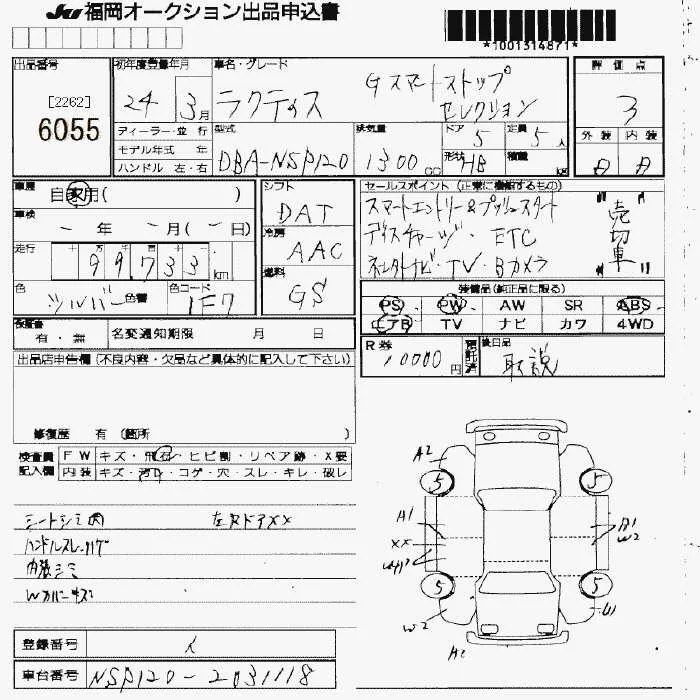 JU 福岡オークション出品申込書
*1001314871*
出品番号
[2262]
6055
初年度登録年月
24 3月
ディーラー・並 行
モデル年式 年
ハンドル 左・右
車名・グレード
ラクティス Gスマートストップ
セレクション
型式
DBA-NSP120
排気量
1300 CC
ドア 5
形状 HB
定員 5人
積載 kg
評価点
3
外装 内装
A A
車歴 自家用( )
車検 - 年 - 月(- 日)
走行 十 万 千 百 十 一
99733 km
色 シルバー 色替
色コード 1F7
シフト
DAT
冷房
AAC
燃料
GS
セールスポイント (正常に機能するもの)
スマートエントリー&プッシュスタート
ディスチャージ・ETC
インターナビ・TV・Bカメラ
"売切車"
装備品(純正品に限る)
PS PW AW SR ABS
エアB TV ナビ カワ 4WD
保証書
有・無
名変通知期限 月 日
R券
10000円
預託済
後日品
取説
出品店申告欄(不良内容・欠品など具体的に記入して下さい)
修復歴 有(箇所 )
検査員記入欄
FW キズ・飛石・ヒビ割・リペア跡・X要
内装 キズ・汚れ・コゲ・穴・スレ・キレ・破レ
シートシミ凹 左Rドアxx
ハンドルスレ・ハゲ
内張シミ
Wカバーキズ
A2
5
5
A1
xx
B1
W2
5
5
W2
W1
A2
登録番号 イ
車台番号 NSP120-2031118